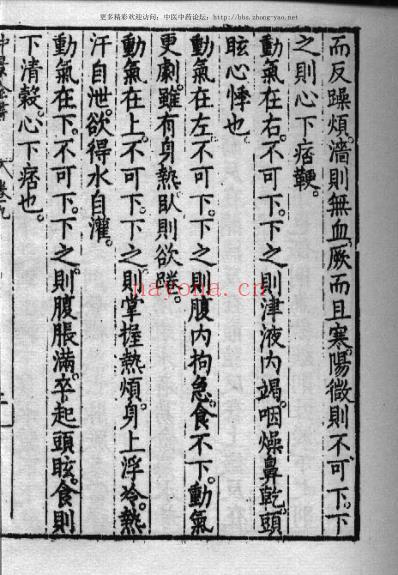 更多精彩欢迎访问：中医中药论坛：http://bbs.zhong-yao.net
而反躁煩濇則無血厥而且寒陽微則不可下下
之則心下痞鞕
動氣在右不可下下之則津液內竭咽燥鼻乾頭
眩心悸也
動氣在左不可下下之則腹內拘急食不下動氣
更劇雖有身熱臥則欲踡
動氣在上不可下下之則掌握熱煩身上浮冷熱
汗自泄欲得水自灌
動氣在下不可下下之則腹脹滿卒起頭眩食則
下清穀心下痞也
nayona.cn